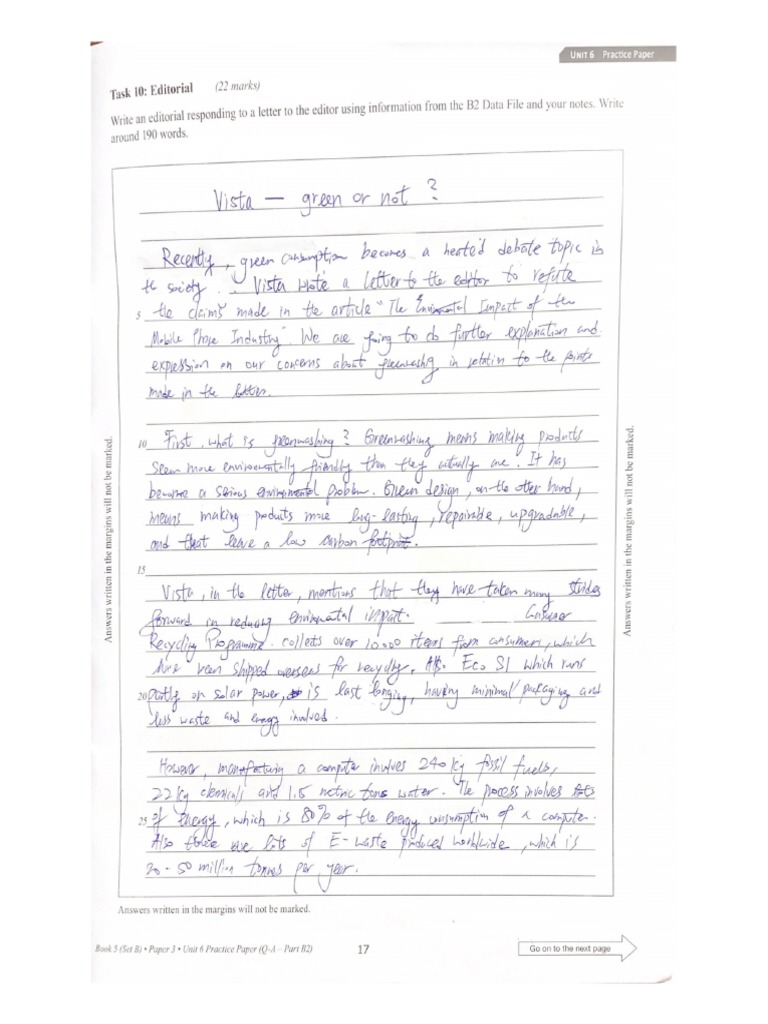 UNIT 6 Practice Paper
Task 10: Editorial (22 marks)
Write an editorial responding to a letter to the editor using information from the B2 Data File and your notes. Write
around 190 words.
Vista — green or not ?
Recently, green consumption becomes a heated debate topic in
the society. Vista wrote a letter to the editor to refute
5 the claims made in the article "The Enviromental Impact of the
Mobile Phone Industry". We are going to do further explanation and
expression on our concerns about greenwashing in relation to the points
made in the letter.
10 First, what is greenwashing? Greenwashing means making products
seem more environmentally friendly than they actually are. It has
become a serious environmental problem. Green design, on the other hand,
means making products more long-lasting, repairable, upgradable,
and that leave a low carbon footprint.
15
Vista, in the letter, mentions that they have taken many strides
forward in reducing enviromental impact. Consumer
Recycling Programme collects over 10000 items from consumers, which
have been shipped overseas for recycling. Also Eco S1 which runs
20 partly on solar power, is last longing, having minimal packaging and
less waste and energy involved.
However, manufacturing a computer involves 240 kg fossil fuels,
22 kg chemicals and 1.5 metric tons water. The process involves lots
25 of energy, which is 80% of the energy consumption of a computer.
Also there are lots of E-waste produced worldwide, which is
20-50 million tonnes per year.
Answers written in the margins will not be marked.
Answers written in the margins will not be marked.
Answers written in the margins will not be marked.
Book 5 (Set B) • Paper 3 • Unit 6 Practice Paper (Q-A – Part B2)
17
Go on to the next page